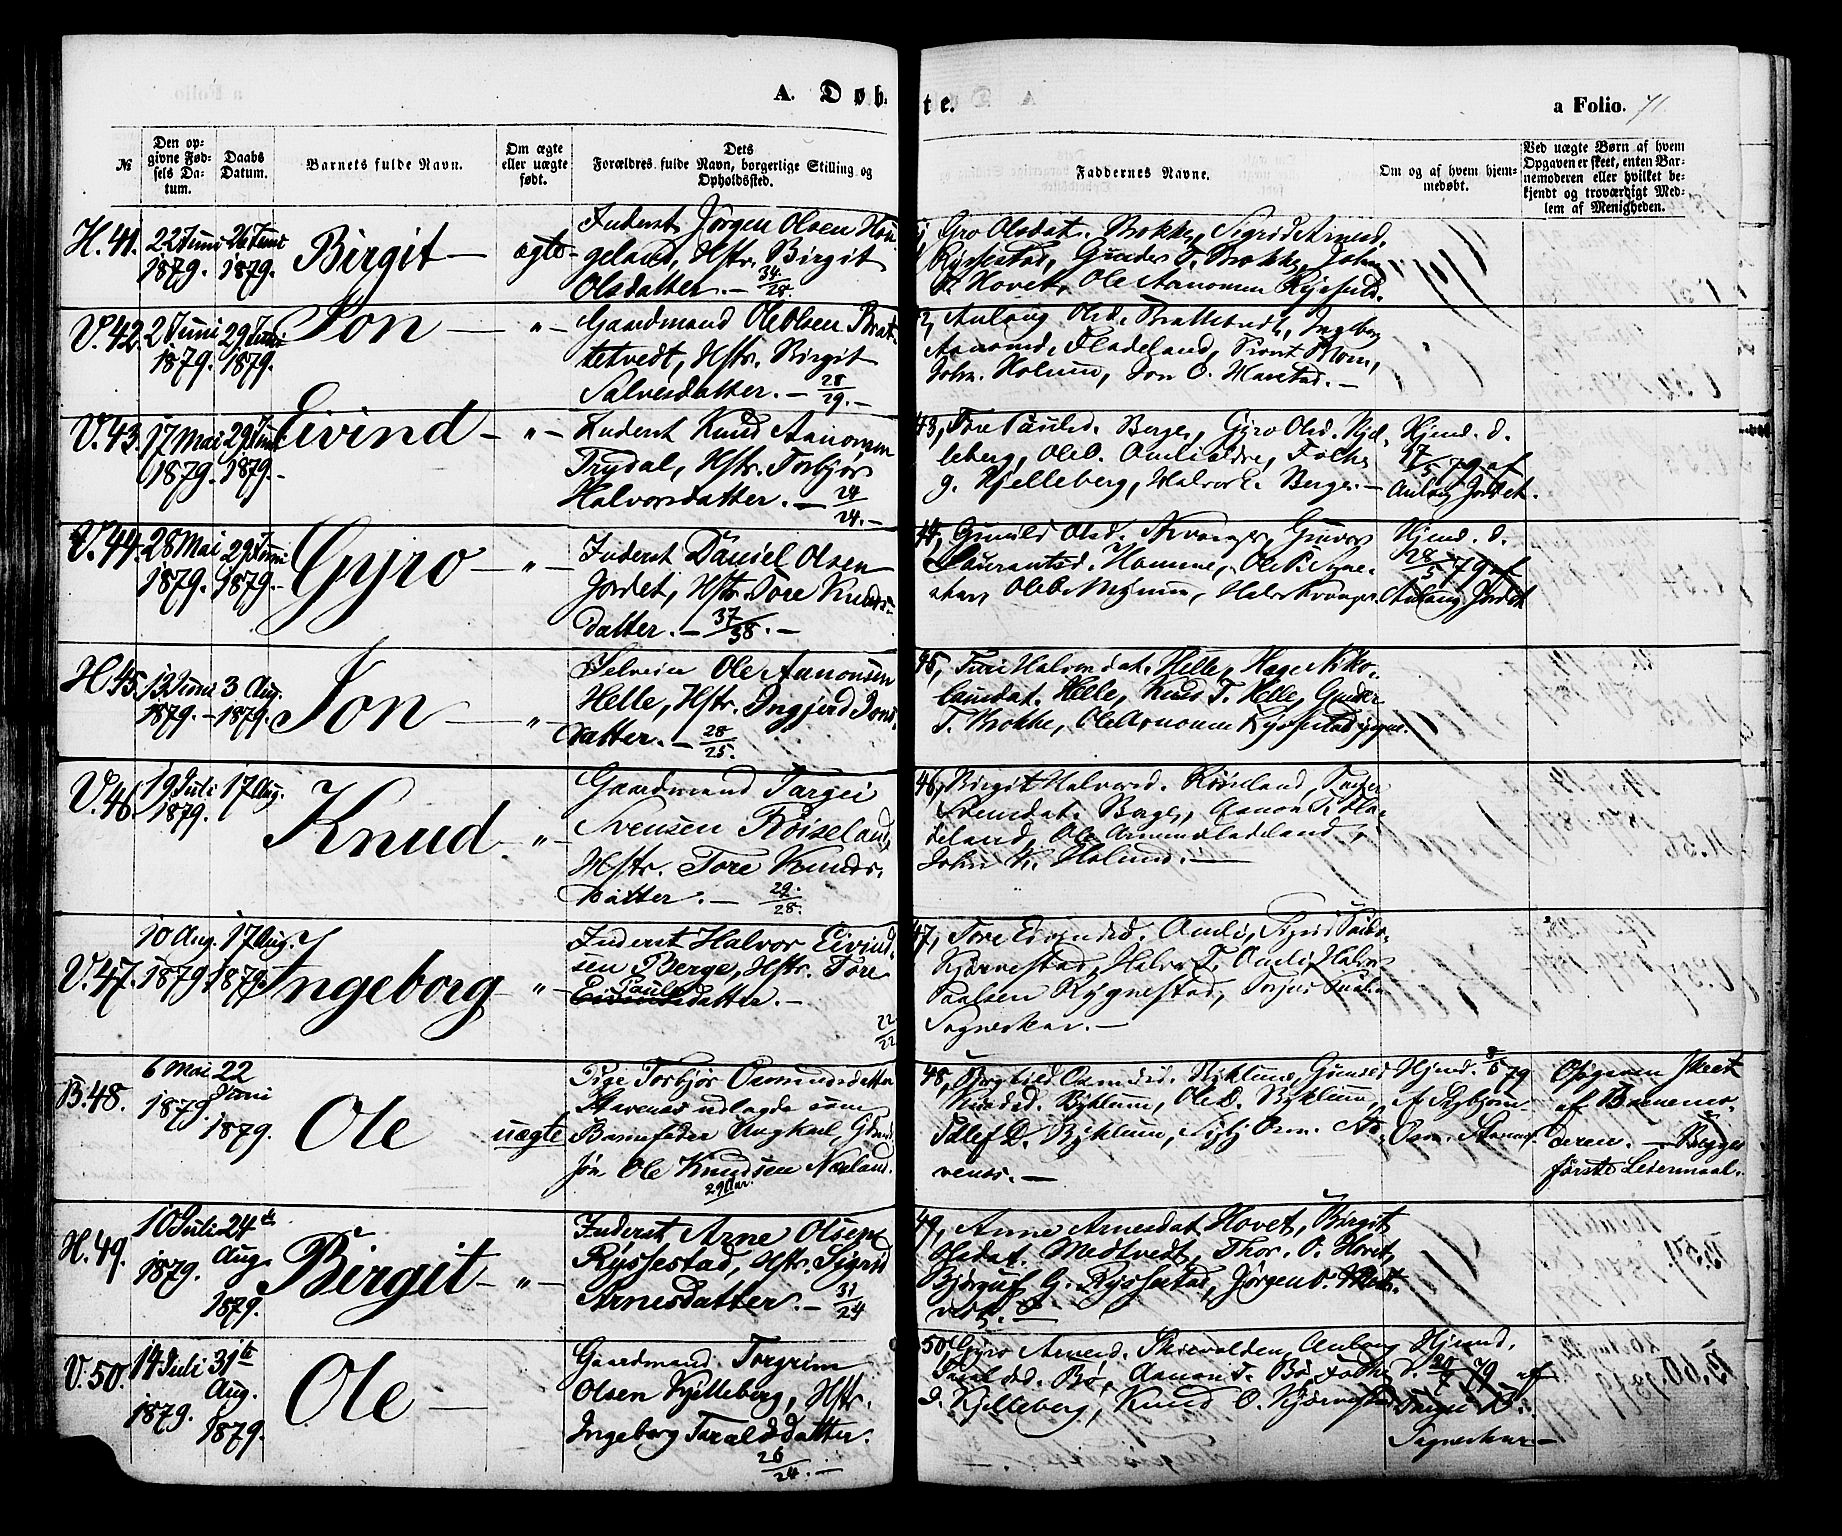 A. Døb-
te.
a Folio. 71.
№
Den op-
givne Fød-
sels Da-
tum.
Daabs
Datum.
Barnets fulde Navn.
Om ægte
eller uægte
født.
Dets
Forældres fulde Navn, borgerlige Stilling og
Opholdssted.
Faddernes Navne.
Om og af hvem hjem-
medøbt.
Ved uægte Børn af hvem
Opgaven er skeet, enten Bar-
nemoderen eller hvilket be-
kjendt og troværdigt Med-
lem af Menigheden.
H. 41.
22 Juni
1879.
26 Juni
1879.
Birgit —
ægte
Inderst Jörgen Olsen Hon-
geland, Hstr. Birgit
Olsdatter. — 34/28.
Gro Olsdat. Brokke, Sigrid Arnesd.
Ryssestad, Gunder T. Brokke, John
Hovet, Ole Aanonsen Ryssest.
V. 42.
2 Juni
1879.
29 Juni
1879.
Jon —
— " —
Gaardmand Ole Olsen Brat-
tetvedt, Hstr. Birgit
Salvesdatter. — 28/29. —
Aulaug Olsd. Brattetvedt, Ingebor
Aanonsd. Fladeland,
John. Holum, Jon O. Harstad. —
V. 43.
17 Mai
1879.
29 Juni
1879. —
Eivind —
— " —
Inderst Knud Aanonsen
Trydal, Hstr. Torbjör
Halvorsdatter. — 24/24. —
43, Tore Paulsd. Berge, Gyro Olsd. Kjel-
leberg, Ole O. Omlid, Folke
G. Kjelleberg, Halvor E. Berge. —
Hjemd. d.
17/5 79 af
Aulaug Jordet.
V. 44.
28 Mai
1879.
29 Juni
1879. —
Gyro
— " —
Inderst Daniel Olsen
Jordet, Hstr. Tore Knuds-
datter. — 37/38. —
44, Gunild Olsd.
Hjemd. d.
28/5 79 af
Aulaug Jordet
H. 45.
13 Juni
1879. —
3 Aug.
1879.
Jon —
"
Selveier Ole Aanonsen
Helle, Hstr. Ingjerd Jons-
datter. — 28/25. —
45, Turi Halvorsdat. Helle, Hage Niko-
lausdat. Helle, Knud T. Helle, Gunder
T. Brokke, Ole Aanonsen Ryssestad
V. 46.
19 Juli
1879.
17 Aug.
Knud
— " —
Gaardmand Targei
Svensen Röiseland,
Hstr. Tore Knuds-
datter. — 29./28.
46, Birgit Halvorsd. Röiseland,
Svensdat. Berge, Aanon K. Fla-
deland, Ole Aanons. Fladeland,
John K. Holum. —
V. 47.
10 Aug.
1879
17 Aug.
1879.
Ingeborg
— " —
Inderst Halvor Eivind-
sen Berge, Hstr. Tore
Pauls
Eivindsdatter. —
22/22
47, Tore Eivindsd. Omli, Sigrid Pauls.
Kjörvestad, Halvor T. Omli, Halvor
Paalsen Rygnestad, Torjus Paulsen
Sagneskar. —
B. 48.
6 Mai
1879.
22
Juni
1879.
Ole
uægte
Pige Torbjör Osmundsdatter
Stavenes udlagde som
Barnefader Ungkarl, Gaard-
Ole Knudsen Næsland.
29 Aar.
48, Osmdsd. Byklum, Gunild
Knudsd. Byklum, Ole D. Byklum,
Tallef D. Byklum, Osm. Sta-
venes. —
Hjemd. 8/5 79
af Torbjörn
Osm. Stavenes.
Opgaven skeet
af Barnemo-
deren. — Begges
förste Leiermaal. —
H. 49.
10 Juli
1879.
24de
Aug.
1879.
Birgit —
— " —
Inderst Arne Olsen
Ryssestad, Hstr. Sigrid
Arnesdatter. — 31/24
49, Anne Arnesdat. Hovet, Birgit
Olsdat. Medtvedt, Thor. O. Hovet,
Björguf G. Ryssestad, Jörgen O. Med-
vedt. —
V. 50.
14 Juli
1879.
31te
Aug.
1879.
Ole —
Gaardmand Torgrim
Olsen Kjelleberg, Hstr.
Ingeborg Taraldsdatter.
26/24. —
50, Gyro Arnesd. Aulaug
Paulsd. Bö, Aanon T. Bö, Folke
Kjelleberg, Knud O. Kjörvestad
Hjemd.
d. 20/7 79 af
Sagneskar —